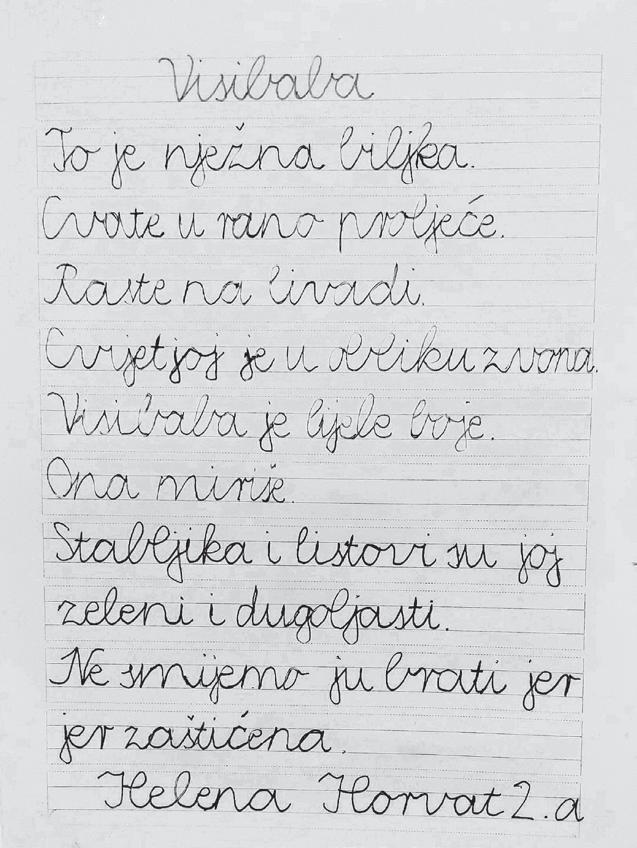 Visibaba
To je nježna biljka.
Cvate u rano proljeće.
Raste na livadi.
Cvijet joj je u obliku zvona.
Visibaba je bijele boje.
Ona miriše.
Stabljika i listovi su joj
zeleni i dugoljasti.
Ne smijemo ju brati jer
jer zaštićena.
Helena Horvat 2.a